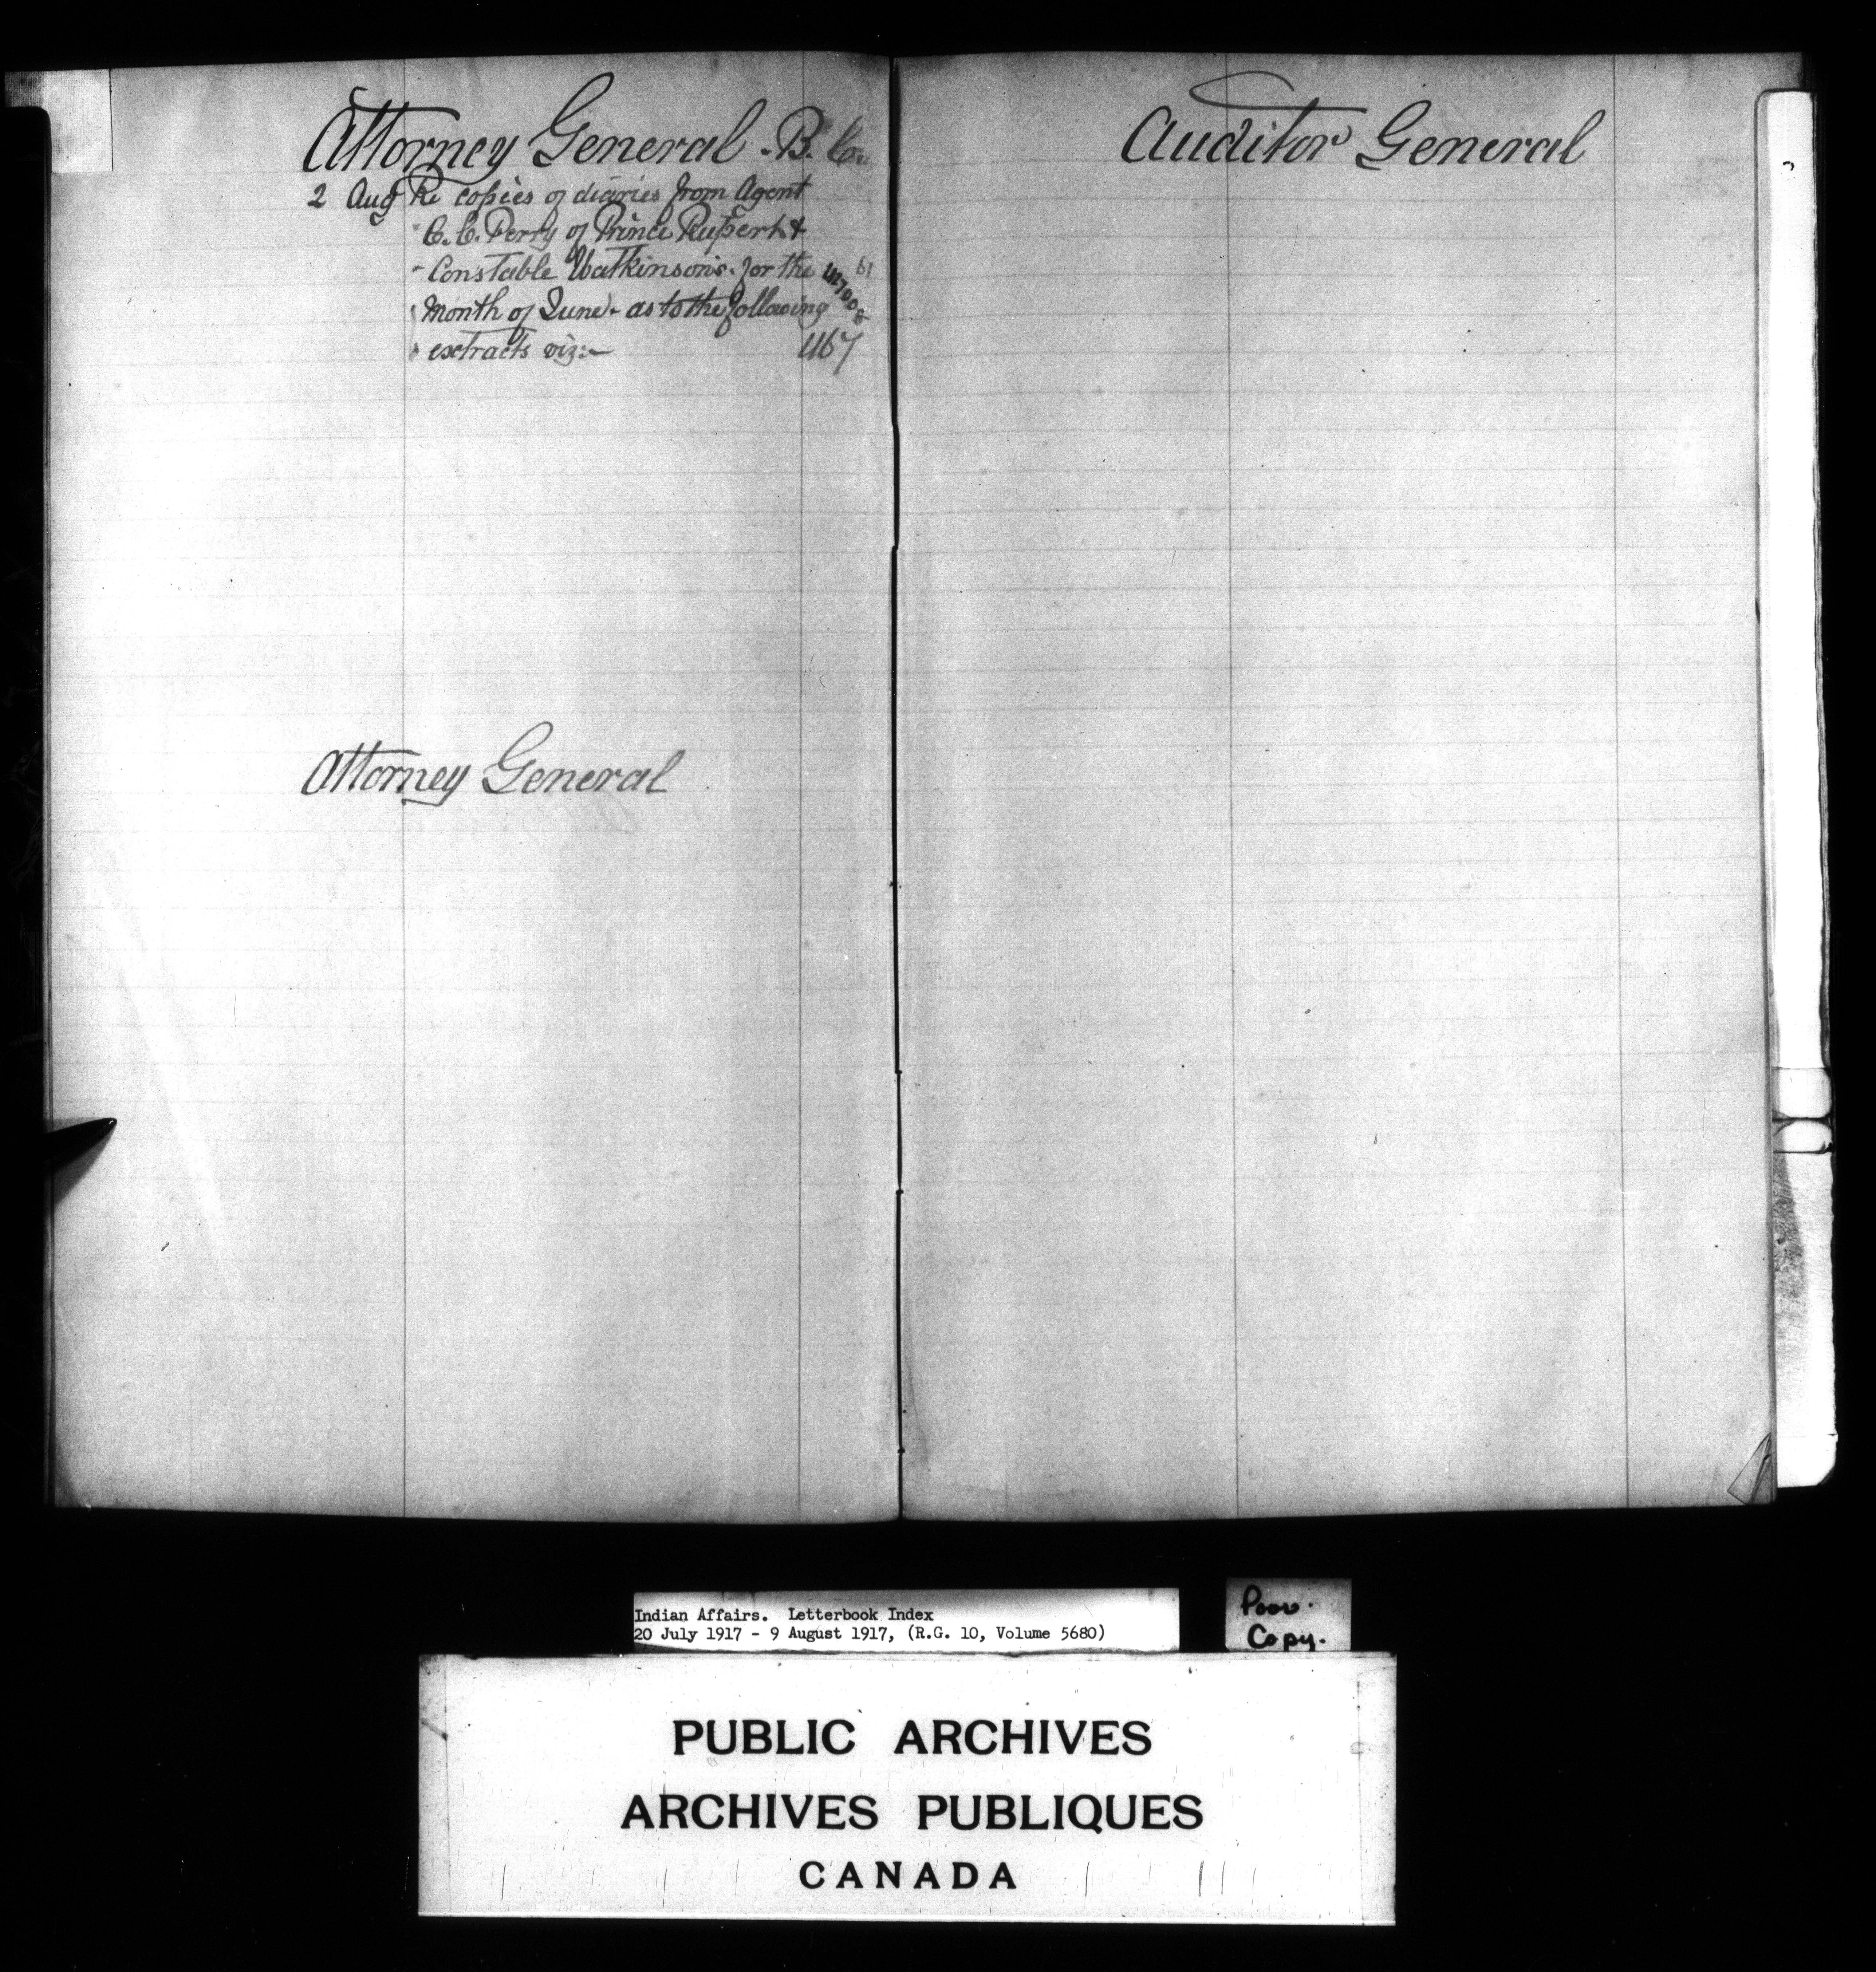 Attorney General - B. C.
2 Aug Re copies of diaries from Agent
C. C. Perry of Prince Rupert &
Constable Watkinson's for the
month of June - as to the following
extracts viz:- 467
Attorney General
Auditor General
Indian Affairs. Letterbook Index
20 July 1917 - 9 August 1917, (R.G. 10, Volume 5680)
Poor
Copy.
PUBLIC ARCHIVES
ARCHIVES PUBLIQUES
CANADA